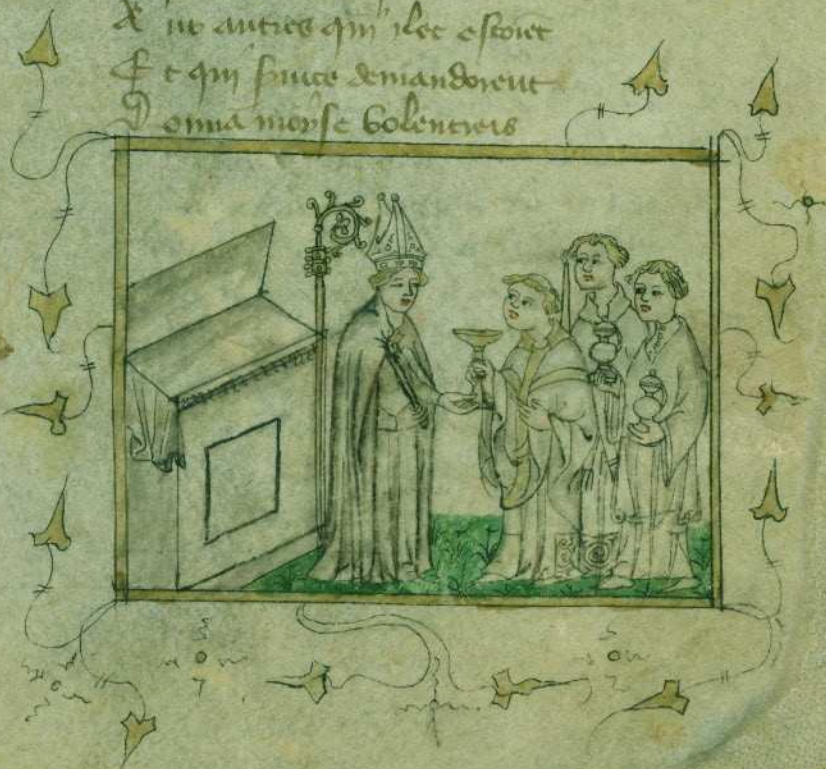 autres qui ilec estoient
Et qui seruice demandoient
Donna morse volentiers